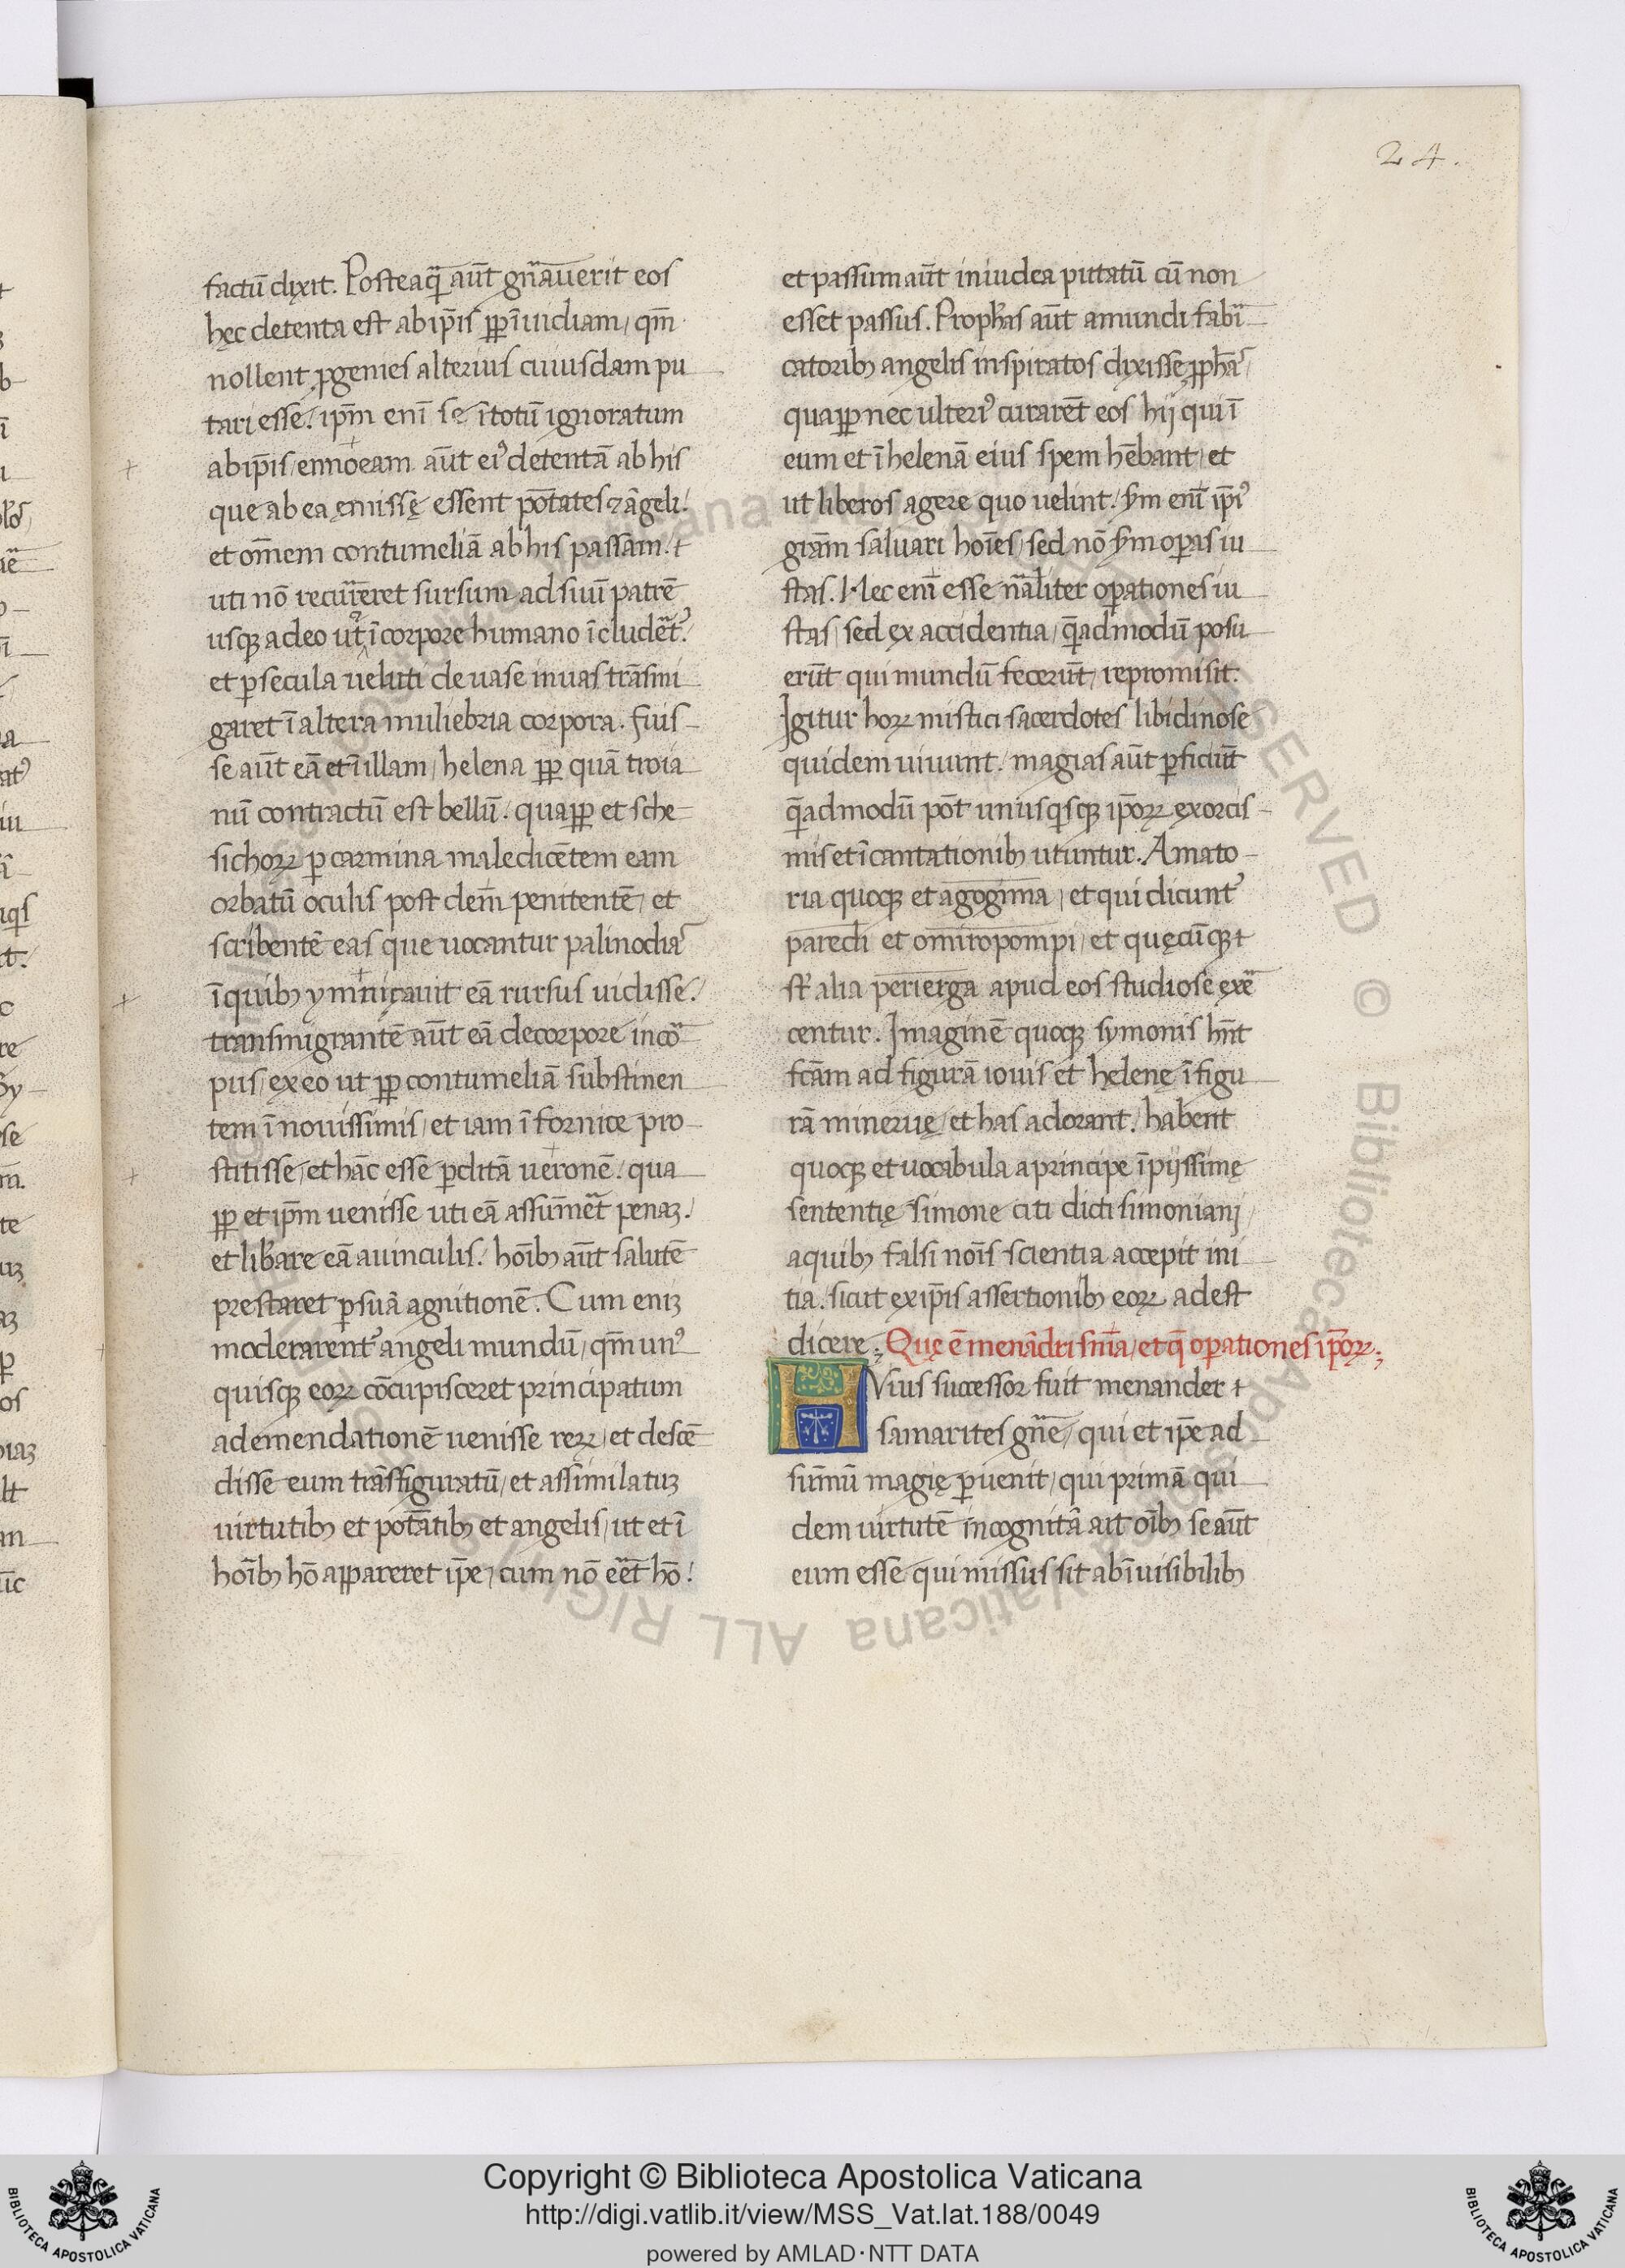 24.
factū dixit. Posteaq̄ aūt gn̄auerit eos
hęc detenta est ab ip̄is ꝓp̄ īuidiam, qm̄
nollent ꝓgenies alterius cuiusdam pu
tari esse. ip̄m enī se ītotū ignoratum
ab ip̄is, ennoeam aūt ei᾽ detentā ab his
que ab ea emissę essent pōtates ⁊ āgeli.
et om̄em contumeliā ab his passam.
uti nō recurreret sursum ad suū patrē
usqꝫ adeo ut ī corpore humano īcluderet᾽.
et ꝑ secula ueluti de uase in uas trāsmi
garet ī altera muliebria corpora. Fuis-
se aūt eā et ī illam, helena ꝓp̄ quā troia
nū contractū est bellū. quaꝓp̄ et sche
sichorꝝ ꝑ carmina maledicētem eam
orbatū oculis post dem̄ penitentē, et
scribentē eas que uocantur palinodias
ī quibꝫ ymnizauit eā rursus uidisse.
transmigrantē aūt eā de corpore in cor
pus, ex eo ut ꝓp̄ contumeliā substinen
tem ī nouissimis, et iam ī fornice pro-
stitisse, et hāc esse ꝑditā ueronē. qua
ꝓp̄ et ip̄m uenisse uti eā assūmeret penaꝫ.
et libare eā a uinculis. hoībꝫ aūt salutē
prestaret ꝑ suā agnitionē. Cum eniꝫ
moderarent᾽ angeli mundū, qm̄ un᾽
quisqꝫ eorꝝ cōcupisceret principatum
ad emendationē uenisse rerꝝ, et descē
disse eum trāsfiguratū, et assimilatuꝫ
uirtutibꝫ et potātibꝫ et angelis, ut et ī
hoībꝫ hō appareret ip̄e, cum nō eēt hō.
et passum aūt in iudea putatū cū non
esset passus. Prophas aūt a mundi fabri
catoribꝫ angelis inspiratos dixisse ꝓphas
quaꝓp̄ nec ulteri᾽ curarēt eos hij qui ī
eum et ī helenā eius spem hēbant, et
ut liberos agere quo uelint. s̄m enī ip̄i᾽
grām sāluari hoīes, sed nō s̄m oꝑas iu
stas. Nec enī esse nāliter oꝑationes iu
stas, sed ex accidentia, q̄admodū posu
erūt qui mundū fecerūt, repromisit.
Igitur horꝝ mistici sacerdotes libidinose
quidem uiuunt. magias aūt ꝑficiūt
q̄admodū pōt unusqsqꝫ ip̄orꝝ exorcis-
mis et īcantationibꝫ utuntur. Amato-
ria quoqꝫ et agogima, et qui dicunt᾽
paredi et omiropompi, et quęcūqꝫ
st̄ alia perierga apud eos studiose exer
centur. Imaginē quoqꝫ symonis hn̄t
fcām ad figurā iouis et helenę ī figu
rā mineruę, et has adorant. habent
quoqꝫ et uocabula a principe īpijssimę
sententię simone citi dicti simoniani
a quibꝫ falsi noīs scientia accepit ini
tia. sicut ex ip̄is assertionibꝫ eorꝝ adest
dicere. Quę ē menādri sn̄ia, et q̄ oꝑationes ip̄orꝝ.
HVius successor fuit menander
samarites gn̄e, qui et ip̄e ad
sūmū magię ꝑuenit, qui primā qui
dem uirtutē incognitā ait oībꝫ se aūt
eum esse qui missus sit ab īuisibilibꝫ
Copyright © Biblioteca Apostolica Vaticana
http://digi.vatlib.it/view/MSS_Vat.lat.188/0049
powered by AMLAD·NTT DATA